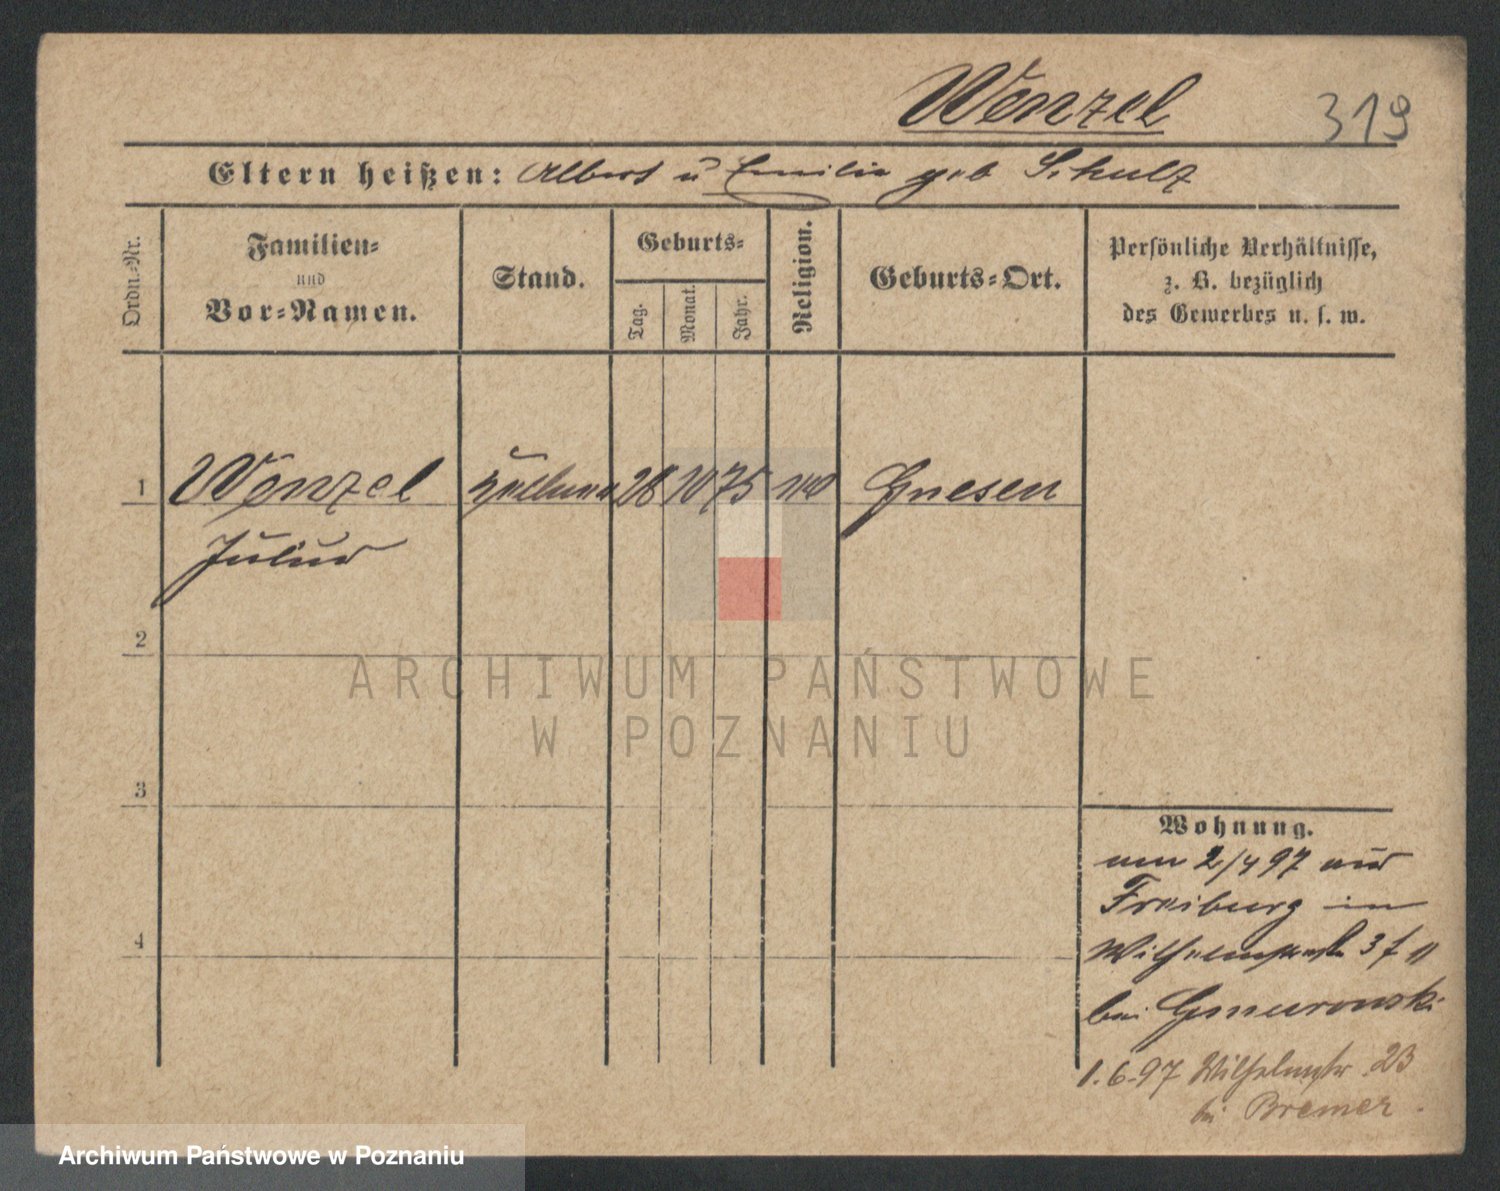 Wenzel 319
Eltern heißen: Albert u Emilie geb Schulz
Ordn.-Nr.
Familien-
und
Vor-Namen.
Stand.
Geburts-
Tag.
Monat.
Jahr.
Religion.
Geburts-Ort.
Persönliche Verhältnisse,
z. B. bezüglich
des Gewerbes u. s. w.
1 Wenzel Kellner 28 10 75 Gnesen
Julius
2
3
4
ARCHIWUM PAŃSTWOWE
W POZNANIU
Wohnung.
am 2/4 97 aus
Freiburg in
Wilhelmstr 3
bei Gmurowski
1.6.97 Wilhelmstr. 23
bei Bremer.
Archiwum Państwowe w Poznaniu